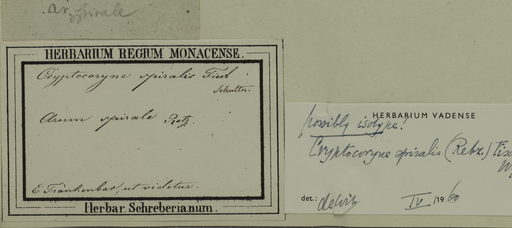 Ar. spirale
HERBARIUM REGIUM MONACENSE.
Cryptocoryne spiralis Fisch
Schultes.
Arum spirale Retz.
E Trankenbar, ut videtur.
Herbar. Schreberianum.
HERBARIUM VADENSE
possibly isotype!
Cryptocoryne spiralis (Retz.) Fisc
det.: deWit IV /1960